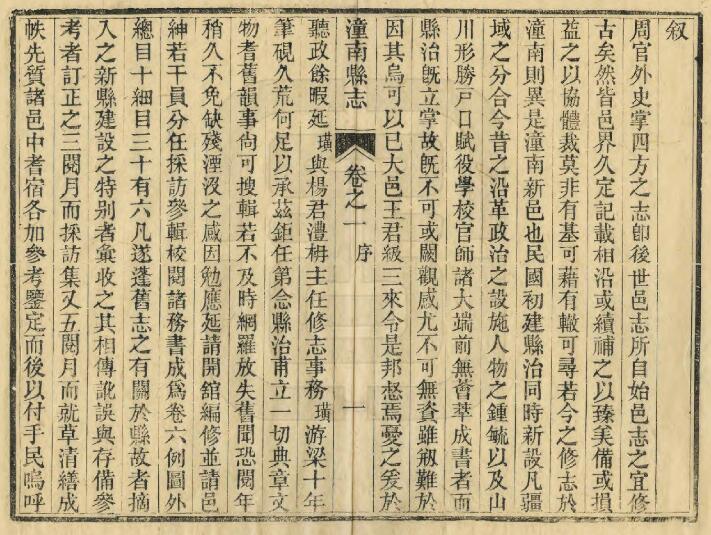 叙
周官外史掌四方之志卽後世邑志所自始邑志之宜修
古矣然皆邑界久定記載相沿或續補之以臻美備或損
益之以協體裁莫非有基可藉有轍可尋若今之修志於
潼南則異是潼南新邑也民國初建縣治同時新設凡疆
域之分合今昔之沿革政治之設施人物之鍾毓以及山
川形勝戸口賦役學校官師諸大端前無薈萃成書者而
縣治旣立掌故旣不可或闕觀感尤不可無資雖剏難於
因其烏可以已大邑王君級三來令是邦惄焉憂之爰於
潼南縣志 卷之一 序 一
聽政餘暇延璜與楊君澧枬主任修志事務璜游梁十年
筆硯久荒何足以承茲鉅任第念縣治甫立一切典章文
物耆舊韻事尙可搜輯若不及時網羅放失舊聞恐閱年
稍久不免缺殘湮沒之慼因勉應延請開舘編修並請邑
紳若干員分任採訪叅輯校閱諸務書成爲卷六例圖外
總目十細目三十有六凡遂蓬舊志之有關於縣故者摘
入之新縣建設之特别者彙收之其相傳訛誤與存備參
考者訂正之三閱月而採訪集又五閱月而就草清繕成
帙先質諸邑中耆宿各加參考鑒定而後以付手民嗚呼